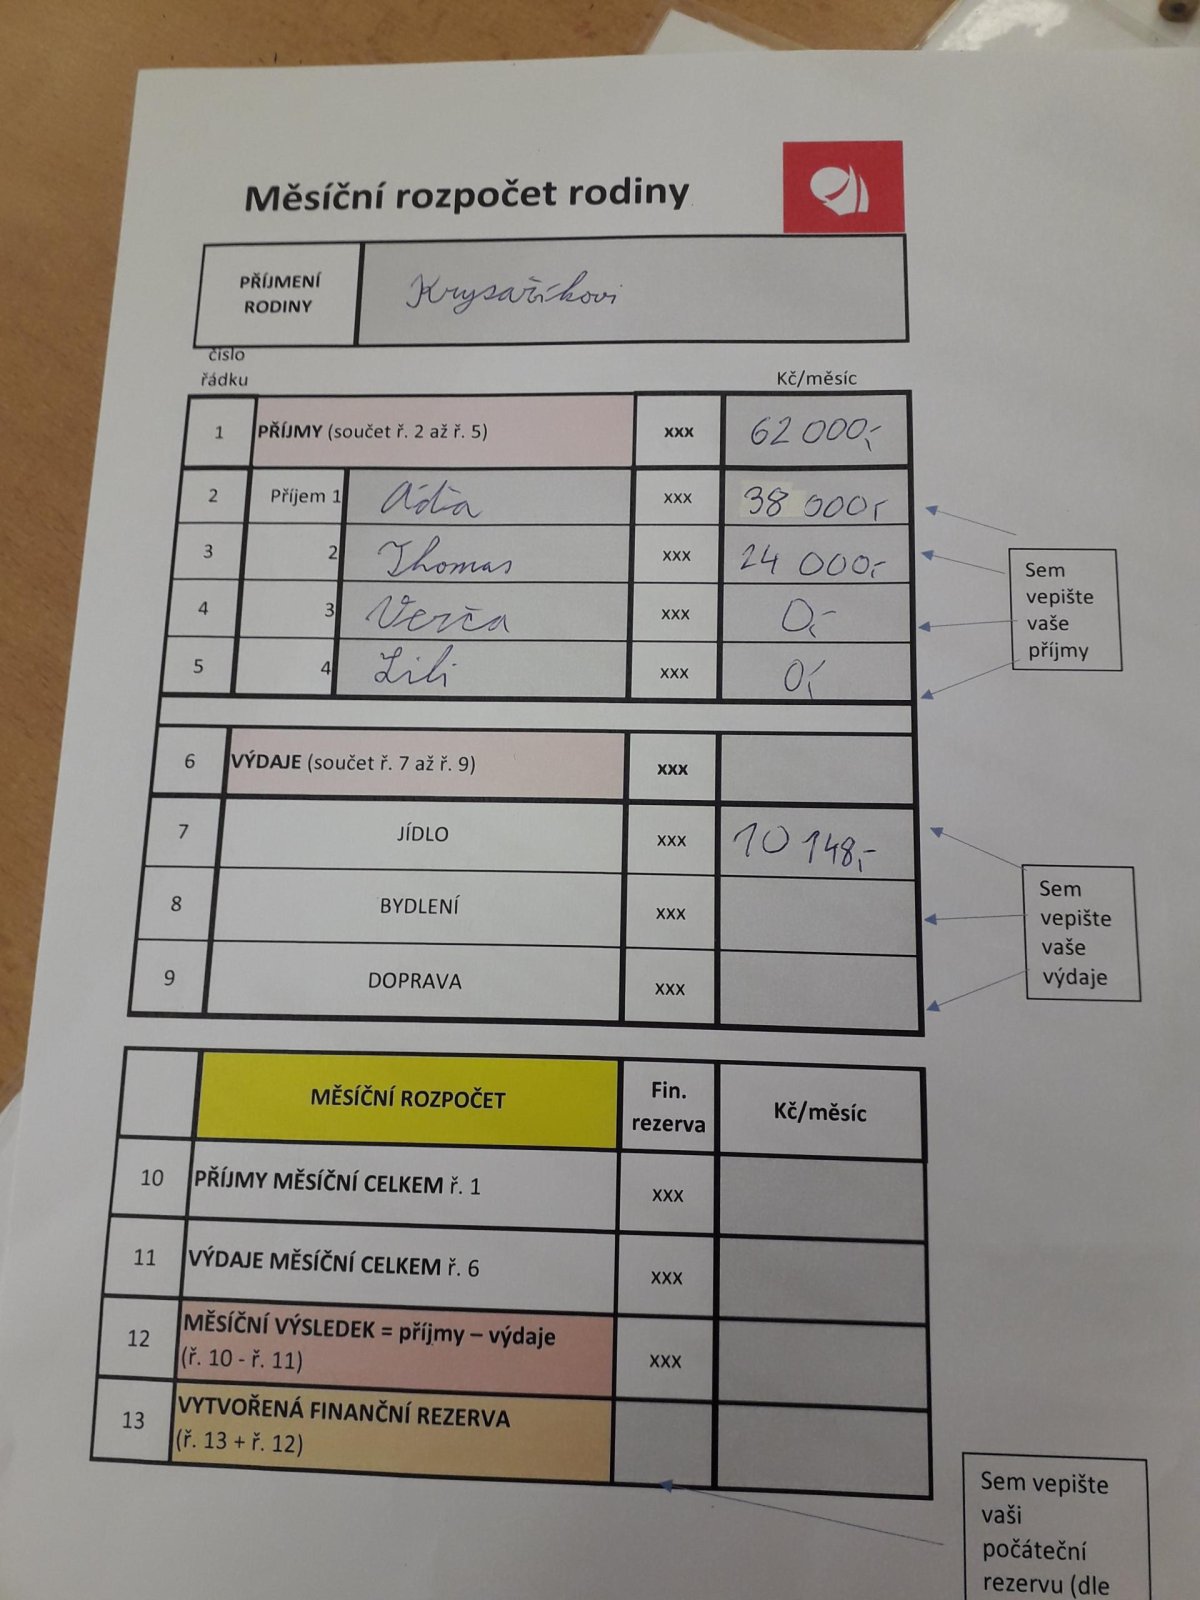 Měsíční rozpočet rodiny
PŘÍJMENÍ RODINY Krysaříkovi
číslo řádku Kč/měsíc
1 PŘÍJMY (součet ř. 2 až ř. 5) xxx 62 000,-
2 Příjem 1 Áďa xxx 38 000,-
3 2 Thomas xxx 24 000,-
4 3 Verča xxx 0,-
5 4 Lili xxx 0,-
Sem
vepište
vaše
příjmy
6 VÝDAJE (součet ř. 7 až ř. 9) xxx
7 JÍDLO xxx 10 148,-
8 BYDLENÍ xxx
9 DOPRAVA xxx
Sem
vepište
vaše
výdaje
MĚSÍČNÍ ROZPOČET Fin. rezerva Kč/měsíc
10 PŘÍJMY MĚSÍČNÍ CELKEM ř. 1 xxx
11 VÝDAJE MĚSÍČNÍ CELKEM ř. 6 xxx
12 MĚSÍČNÍ VÝSLEDEK = příjmy – výdaje
(ř. 10 - ř. 11) xxx
13 VYTVOŘENÁ FINANČNÍ REZERVA
(ř. 13 + ř. 12)
Sem vepište
vaši
počáteční
rezervu (dle